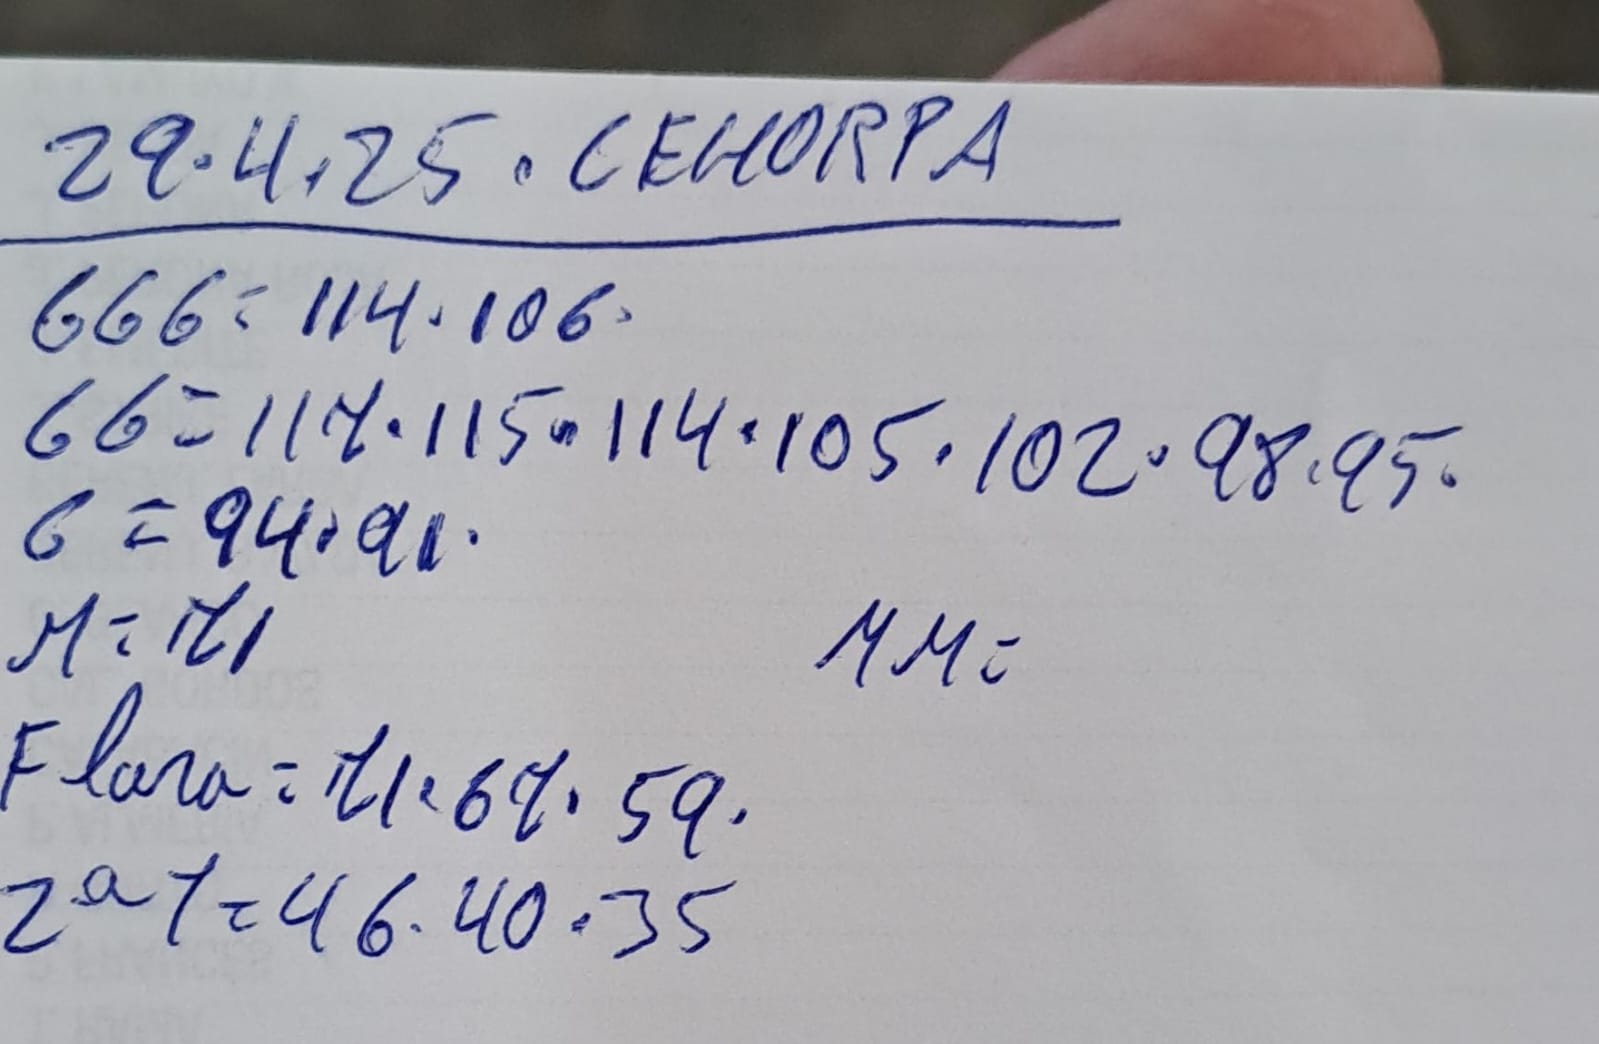 29.4.25. CEHORPA
666=114.106.
66=117.115.114.105.102.98.95.
6=94.91.
M=71 MM=
Flara=71.67.59.
2ªT=46.40.35